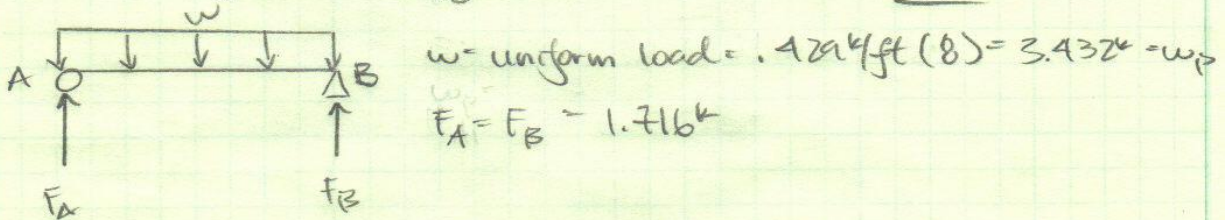 w
A B w= uniform load= .429k/ft (8)= 3.432k =wP
FA = FB = 1.716k
FA FB